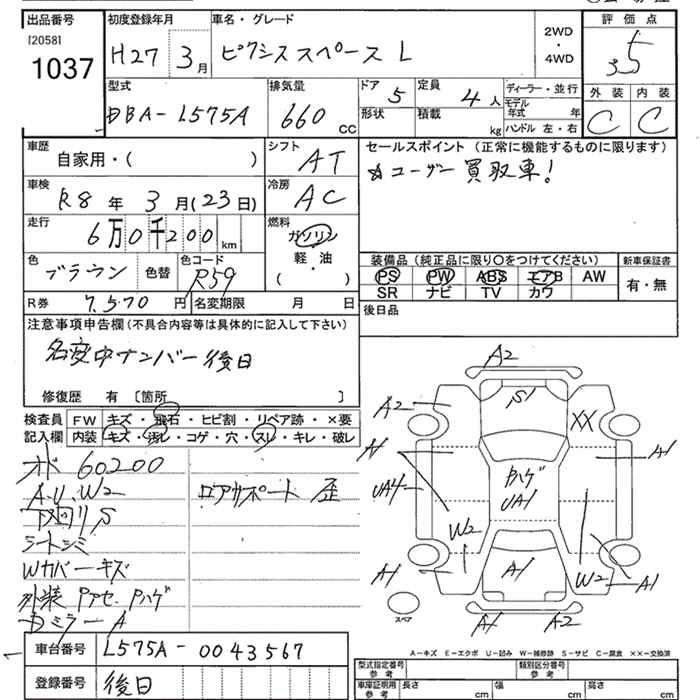 出品番号 初度登録年月 車名・グレード 評価点
[2058] 1037 H27 3月 ピクシススペース L 2WD・4WD 3.5
型式 排気量 ドア 5 定員 4人 ディーラー・並行 外装 内装
DBA-L575A 660 CC 形状 積載 kg モデル年式 年 C C
ハンドル 左・右
車歴 シフト セールスポイント (正常に機能するものに限ります)
自家用・( ) AT ユーザー買取車!
車検 冷房
R8年 3月(23日) AC
走行 燃料
6万0千200km ガソリン・軽・油 ( )
色 色替 色コード 装備品 (純正品に限り○をつけてください) 新車保証書
ブラウン R59 PS PW ABS エアB AW 有・無
SR ナビ TV カワ
R券 7,570円 名変期限 月 日 後日品
注意事項申告欄 (不具合内容等は具体的に記入して下さい)
名変中ナンバー後日
修復歴 有 [箇所 ]
検査員 FW キズ・飛石・ヒビ割・リペア跡・×要
記入欄 内装 キズ・汚レ・コゲ・穴・スレ・キレ・破レ
60200
A・U、W2 ロアサポート 歪
下回りS
シートシミ
Wカバーキズ
外装 Pハゲ
ミラーA
A2
A2 S1 XX
A1 A1
UA4 Pハゲ UA1
W2
A1 A1 W2 A1
スペア A1 A2
A-キズ E-エクボ U-凹み W-補修跡 S-サビ C-腐食 ××-交換済
車台番号 L575A-0043567
型式指定番号 参考 類別区分番号 参考
登録番号 後日
車庫証明用 参考 長さ cm 幅 cm 高さ cm